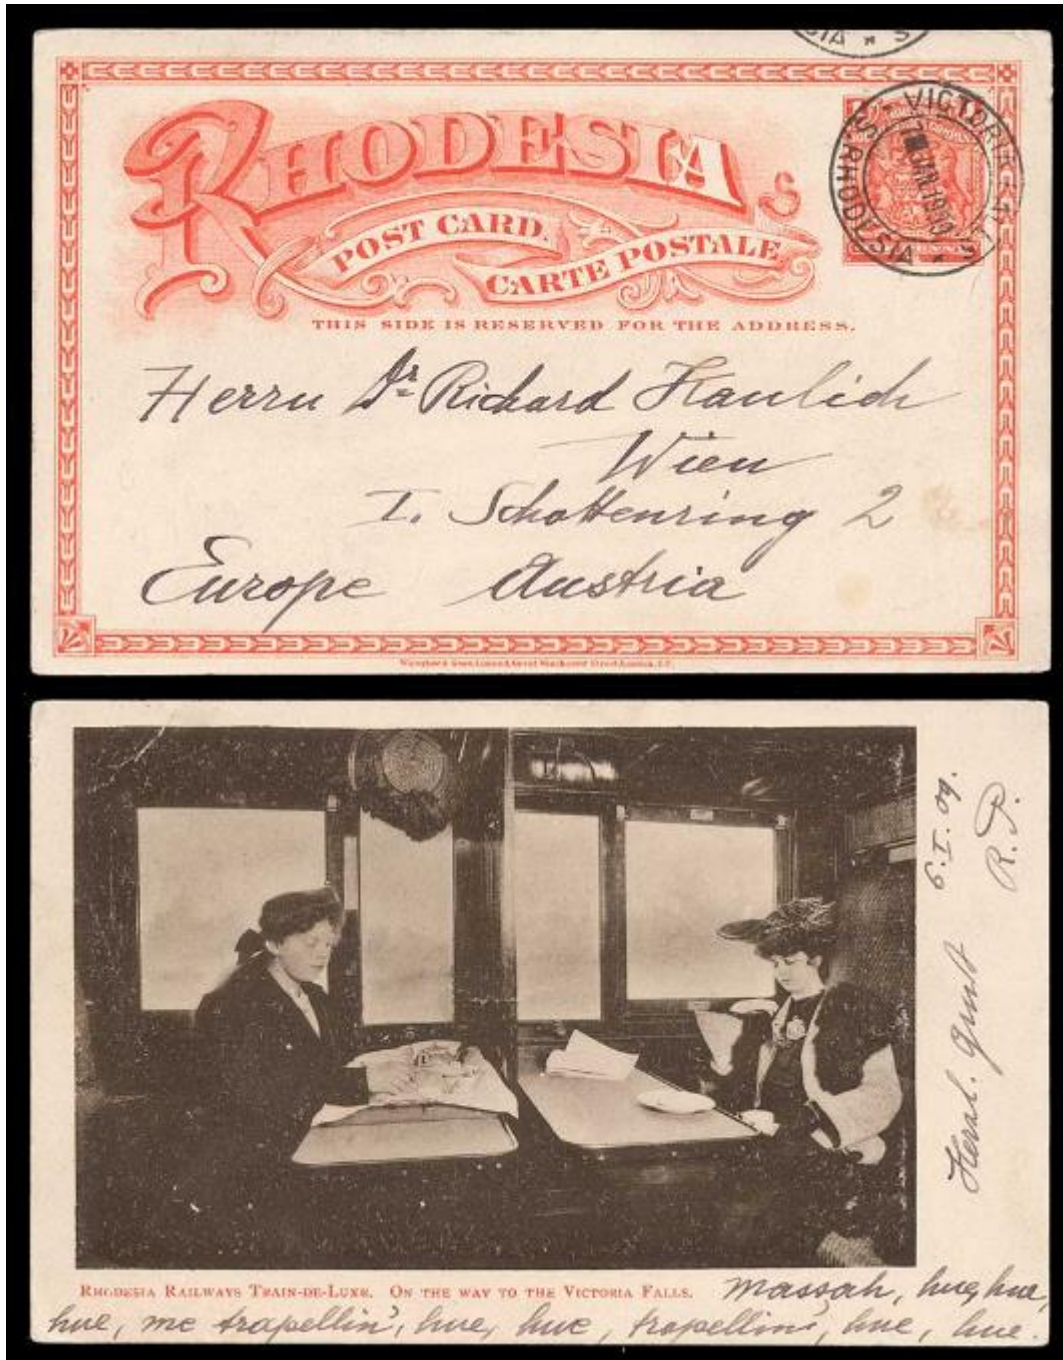 RHODESIA
POST CARD.
CARTE POSTALE
THIS SIDE IS RESERVED FOR THE ADDRESS.
VICTORIA FALLS
S. RHODESIA
Herrn Dr Richard Kaulich
Wien
I. Schottenring 2
Europe Austria
6.I.09.
R.P.
Herzl.
RHODESIA RAILWAYS TRAIN-DE-LUXE. ON THE WAY TO THE VICTORIA FALLS.
Massah, hue, hue,
hue, me trapellin', hue, hue, trapellin', hue, hue.